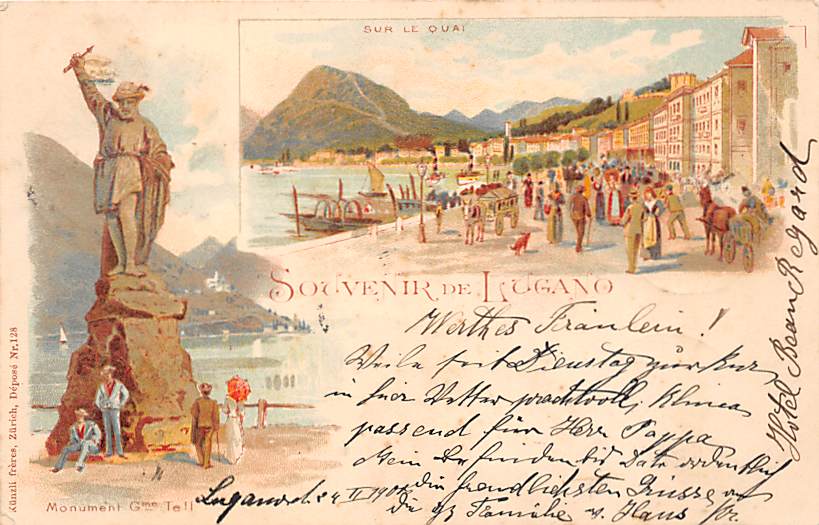 SUR LE QUAI
SOUVENIR DE LUGANO
Werthes Fräulein!
Weile seit Dienstag zur Kur
in hier Wetter prachtvoll, Klima
passend für Herr Pappa
Mein Befinden bis Dato ordentlich
die freundlichsten Grüsse an
die gz Familie v. Hans
Lugano d. 24 II 1902
Hotel Beau Regard
Monument Gme Tell
Künzli frères, Zürich, Déposé Nr. 128